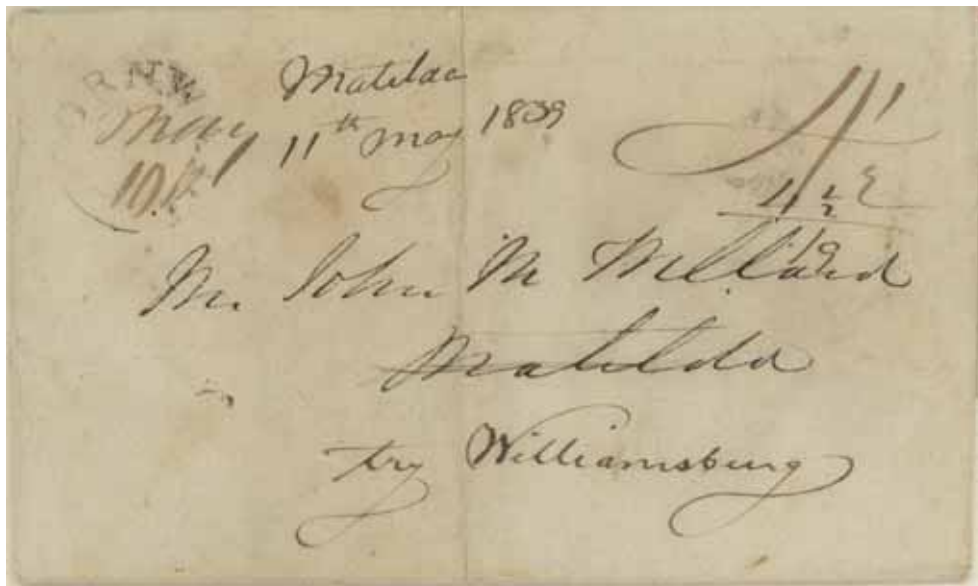 ORNW
May
10
Matilda
11th May 1839
4½
Mr. John M Millard
Matilda
try Williamsburg